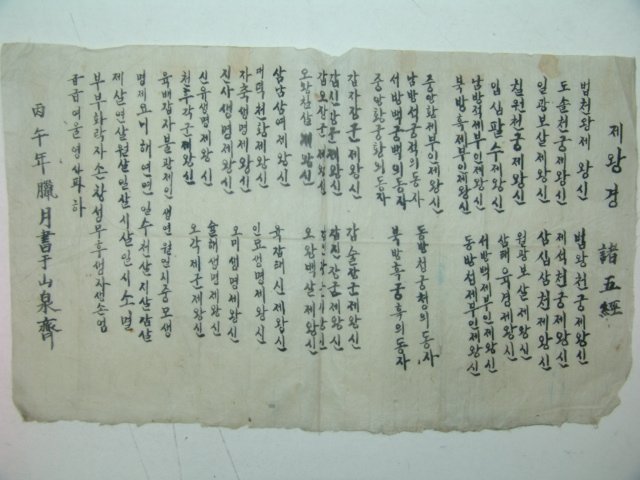 제왕경 諸五經
범천왕제왕신 범왕천궁제왕신
도솔천궁제왕신 제석천궁제왕신
일광보살제왕신 삼십삼천제왕신
칠원천궁제왕신 월광보살제왕신
임심팔수제왕신 삼태육경제왕신
남방적제부인제왕신 서방백제부인제왕신
북방흑제부인제왕신 동방청제부인제왕신
중앙황제부인제왕신
남방적궁적의동자 동방청궁청의동자
서방백궁백의동자 북방흑궁흑의동자
중앙황궁황의동자
갑자장군제왕신 갑술장군제왕신
갑신장군제왕신 갑진장군제왕신
갑오장군제왕신
오왕참삼제왕신 오왕백살제왕신
삼남삼여제왕신 육갑태신제왕신
며떡천황제왕신 인묘생명제왕신
자축생명제왕신 오미생명제왕신
진사생명제왕신 술해생명제왕신
신유생명제왕신 오각제군제왕신
천두각군제왕신
육배잡자불광제인생연월연시중모생
제살연살월살일살시살인시소멸
부부화락자손창성무흥생자생손영
급급여율영사파하
丙午年臘月書于山泉齊